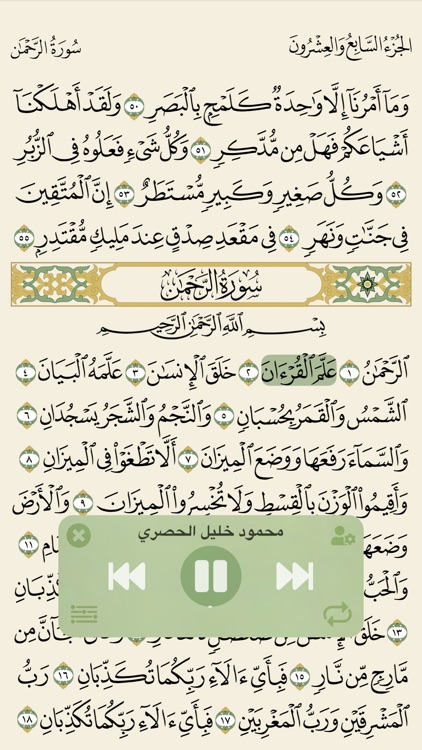 الجُزْءُ السَّابِعُ وَالعِشْرُونَ
سُورَةُ الرَّحْمَٰن
وَمَآ أَمْرُنَآ إِلَّا وَٰحِدَةٌ كَلَمْحٍۭ بِٱلْبَصَرِ ٥٠ وَلَقَدْ أَهْلَكْنَآ
أَشْيَاعَكُمْ فَهَلْ مِن مُّدَّكِرٍ ٥١ وَكُلُّ شَىْءٍ فَعَلُوهُ فِى ٱلزُّبُرِ
٥٢ وَكُلُّ صَغِيرٍ وَكَبِيرٍ مُّسْتَطَرٌ ٥٣ إِنَّ ٱلْمُتَّقِينَ
فِى جَنَّٰتٍ وَنَهَرٍ ٥٤ فِى مَقْعَدِ صِدْقٍ عِندَ مَلِيكٍ مُّقْتَدِرٍۭ ٥٥
سُورَةُ الرَّحْمَٰن
بِسْمِ ٱللَّهِ ٱلرَّحْمَٰنِ ٱلرَّحِيمِ
ٱلرَّحْمَٰنُ ١ عَلَّمَ ٱلْقُرْءَانَ ٢ خَلَقَ ٱلْإِنسَٰنَ ٣ عَلَّمَهُ ٱلْبَيَانَ ٤
ٱلشَّمْسُ وَٱلْقَمَرُ بِحُسْبَانٍ ٥ وَٱلنَّجْمُ وَٱلشَّجَرُ يَسْجُدَانِ ٦
وَٱلسَّمَآءَ رَفَعَهَا وَوَضَعَ ٱلْمِيزَانَ ٧ أَلَّا تَطْغَوْا۟ فِى ٱلْمِيزَانِ ٨
وَأَقِيمُوا۟ ٱلْوَزْنَ بِٱلْقِسْطِ وَلَا تُخْسِرُوا۟ ٱلْمِيزَانَ ٩ وَٱلْأَرْضَ
وَضَعَهَا
١١
محمود خليل الحصري
وَٱلْحَبُّ
١٣ خَلَقَ ٱلْإِنسَٰنَ مِن
مِن
مَّارِجٍ مِّن نَّارٍ ١٥ فَبِأَىِّ ءَالَآءِ رَبِّكُمَا تُكَذِّبَانِ ١٦ رَبُّ
ٱلْمَشْرِقَيْنِ وَرَبُّ ٱلْمَغْرِبَيْنِ ١٧ فَبِأَىِّ ءَالَآءِ رَبِّكُمَا تُكَذِّبَانِ ١٨